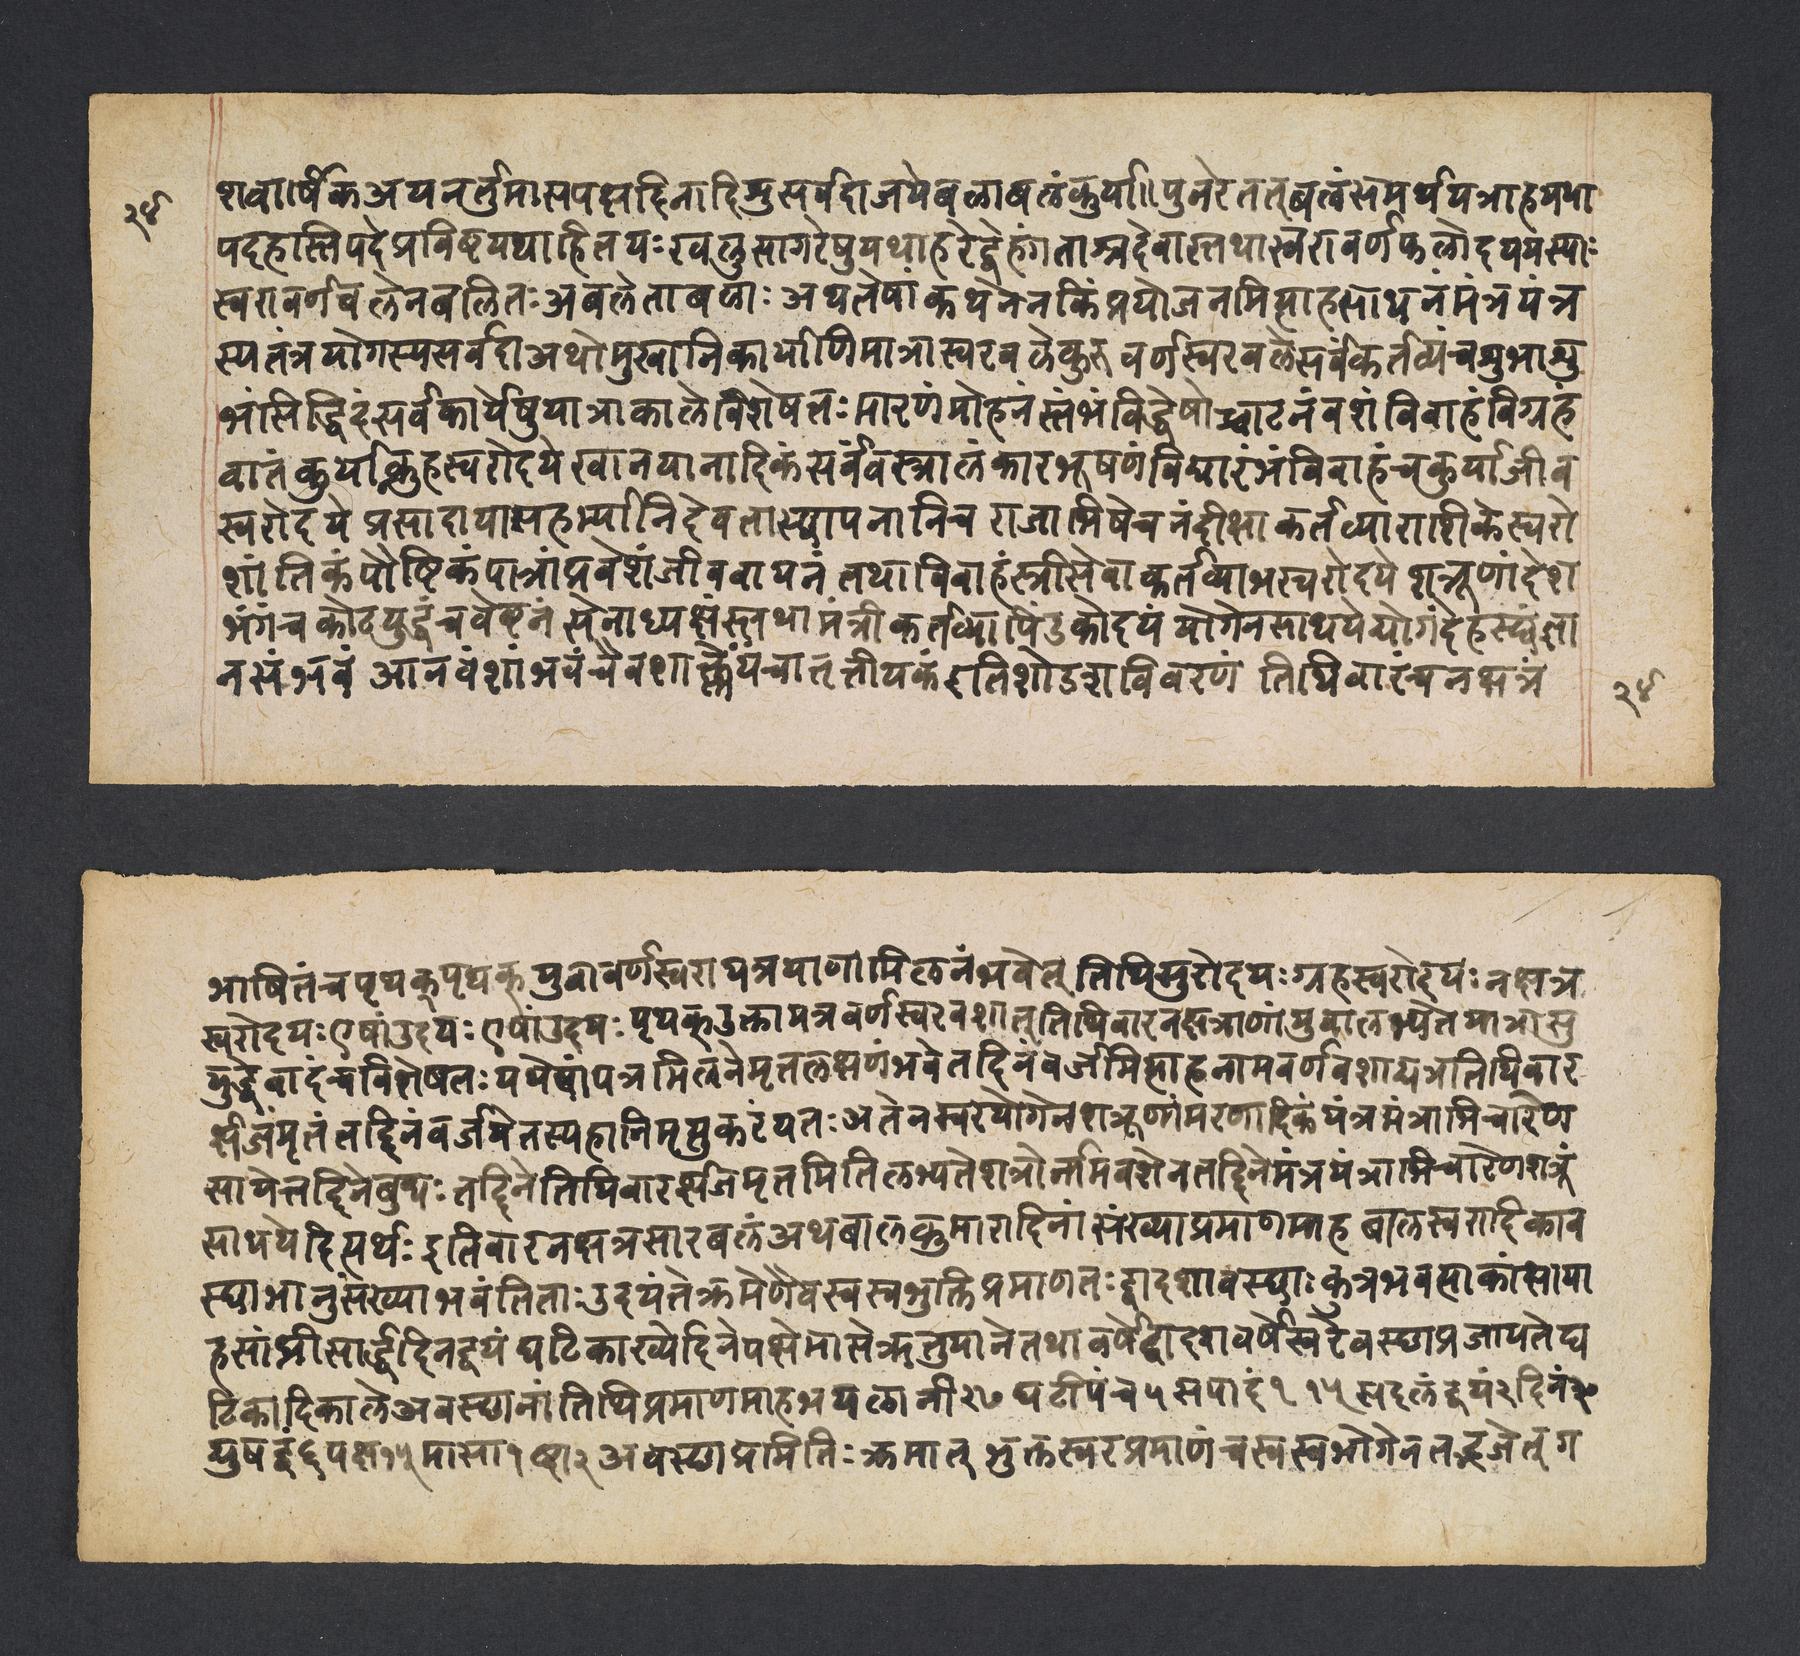 २४
शवार्षिकअयनर्तुमासपक्षदिनादिसुसर्वदाजयेबलाबलंकुर्या॥पुनरेततबलंसमर्थयन्नाहयथा
पदहास्तिपदेप्रविष्टयथाहितयःखलुसागरेषुयथाहरेद्देहंगताश्चदेवास्तथास्वरावर्णफलोदययस्याः
स्वरावर्णबलेनबलितःअबलेताबलाः अथतेषांकथनेनकिंप्रयोजनमित्याहसाधनंमंत्रयंत्र
स्यतंत्रयोगस्यसर्वदाअथोमुखानिकार्याणिमात्रास्वरबलेकुरुवर्णस्वरबलेसर्वंकर्तव्यंचशुभाशु
भंसिद्धिदंसर्वकार्येषुयात्राकालेविशेषतःमारणंमोहनंस्तंभंविद्वेषोच्चाटनंवशंविवाहंविग्रहं
वातंकुर्याग्रहस्वरोदयेखानपानादिकंसर्वंवस्त्रालंकारभूषणंविद्यारंभंविवाहंचकुर्याजीव
स्वरोदयेप्रसादारामहर्म्यानिदेवतास्थापनानिच राजाभिषेचनंदीक्षाकर्तव्याराशिकेस्वरो
शांतिकंपौष्टिकंयात्रांप्रवेशंजीववापनंतथाविवाहंस्त्रीसेवाकर्तव्याभस्वरोदयेशत्रूणांदेश
भंगंचकोटयुद्धंचवेष्टनंसेनाध्यक्षंस्तथामंत्रीकर्तव्यापिंडकोदयंयोगेनसाधयेद्योगंदेहस्थंज्ञा
नसंभवं आनवंशांभवंचैवशाक्तेयंचातत्तीयकंइतिशोडशविवरणं तिथिवारंचनक्षत्रं
२४
भाषितंचपृथक्पृथक्युवावर्णस्वरायत्रयाणामिलनंभवेत् तिथिसुरोदयःग्रहस्वरोदयःनक्षत्र
स्वरोदयःएषांउदयःएषांउदयःपृथक्उक्तायत्रवर्णस्वरवशात्तिथिवारनक्षत्राणांयुवालभ्यतेयात्रासु
युद्धेवादंचविशेषतःयथैषांयत्रमिलनेमृतलक्षणंभवेतदिनंवर्जमित्याहनामवर्णवशाद्यत्रतिथिवार
र्क्षजंमृतंतद्दिनंवर्जयेतस्यहानिमृत्युकरंयतःअतेनस्वरयोगेनशत्रूणांमरणादिकंयंत्रमंत्राभिचारेण
साधयेत्तद्दिनेबुधःतद्दिनेतिथिवारर्क्षजमृतमितिलभ्यतेशत्रोर्नामवशेनतद्दिनेमंत्रयंत्राभिचारेणशत्रूं
साधयेदित्यर्थःइतिवारनक्षत्रसारबलंअथबालकुमारादिनांसंख्याप्रमाणमाह बालस्वरादिकाव
स्थाभानुसंख्याभवंतिताःउदयंतेक्रमेणैवस्वस्वभुक्तिप्रमाणतःद्वादशावस्थाःकुत्रभवत्याकांक्षाया
हसांघ्रीसार्द्धदिनद्वयं घटिकाख्येदिनेपक्षेमासेऋतुमानेतथावर्षेद्वादशवर्षेस्वरैवस्थाप्रजायतेघ
टिकादिकालेअवस्थानांतिथिप्रमाणमाहभयलानी२७ घटीपंच५सपादं१।१५सदलंद्वयं२दिनं
द्युषट्टं६पक्ष१५मासा१ २अवस्थाप्रमितिःक्रमात् भुक्तस्वरप्रमाणंचस्वस्वभोगेनतद्भजेत्ग